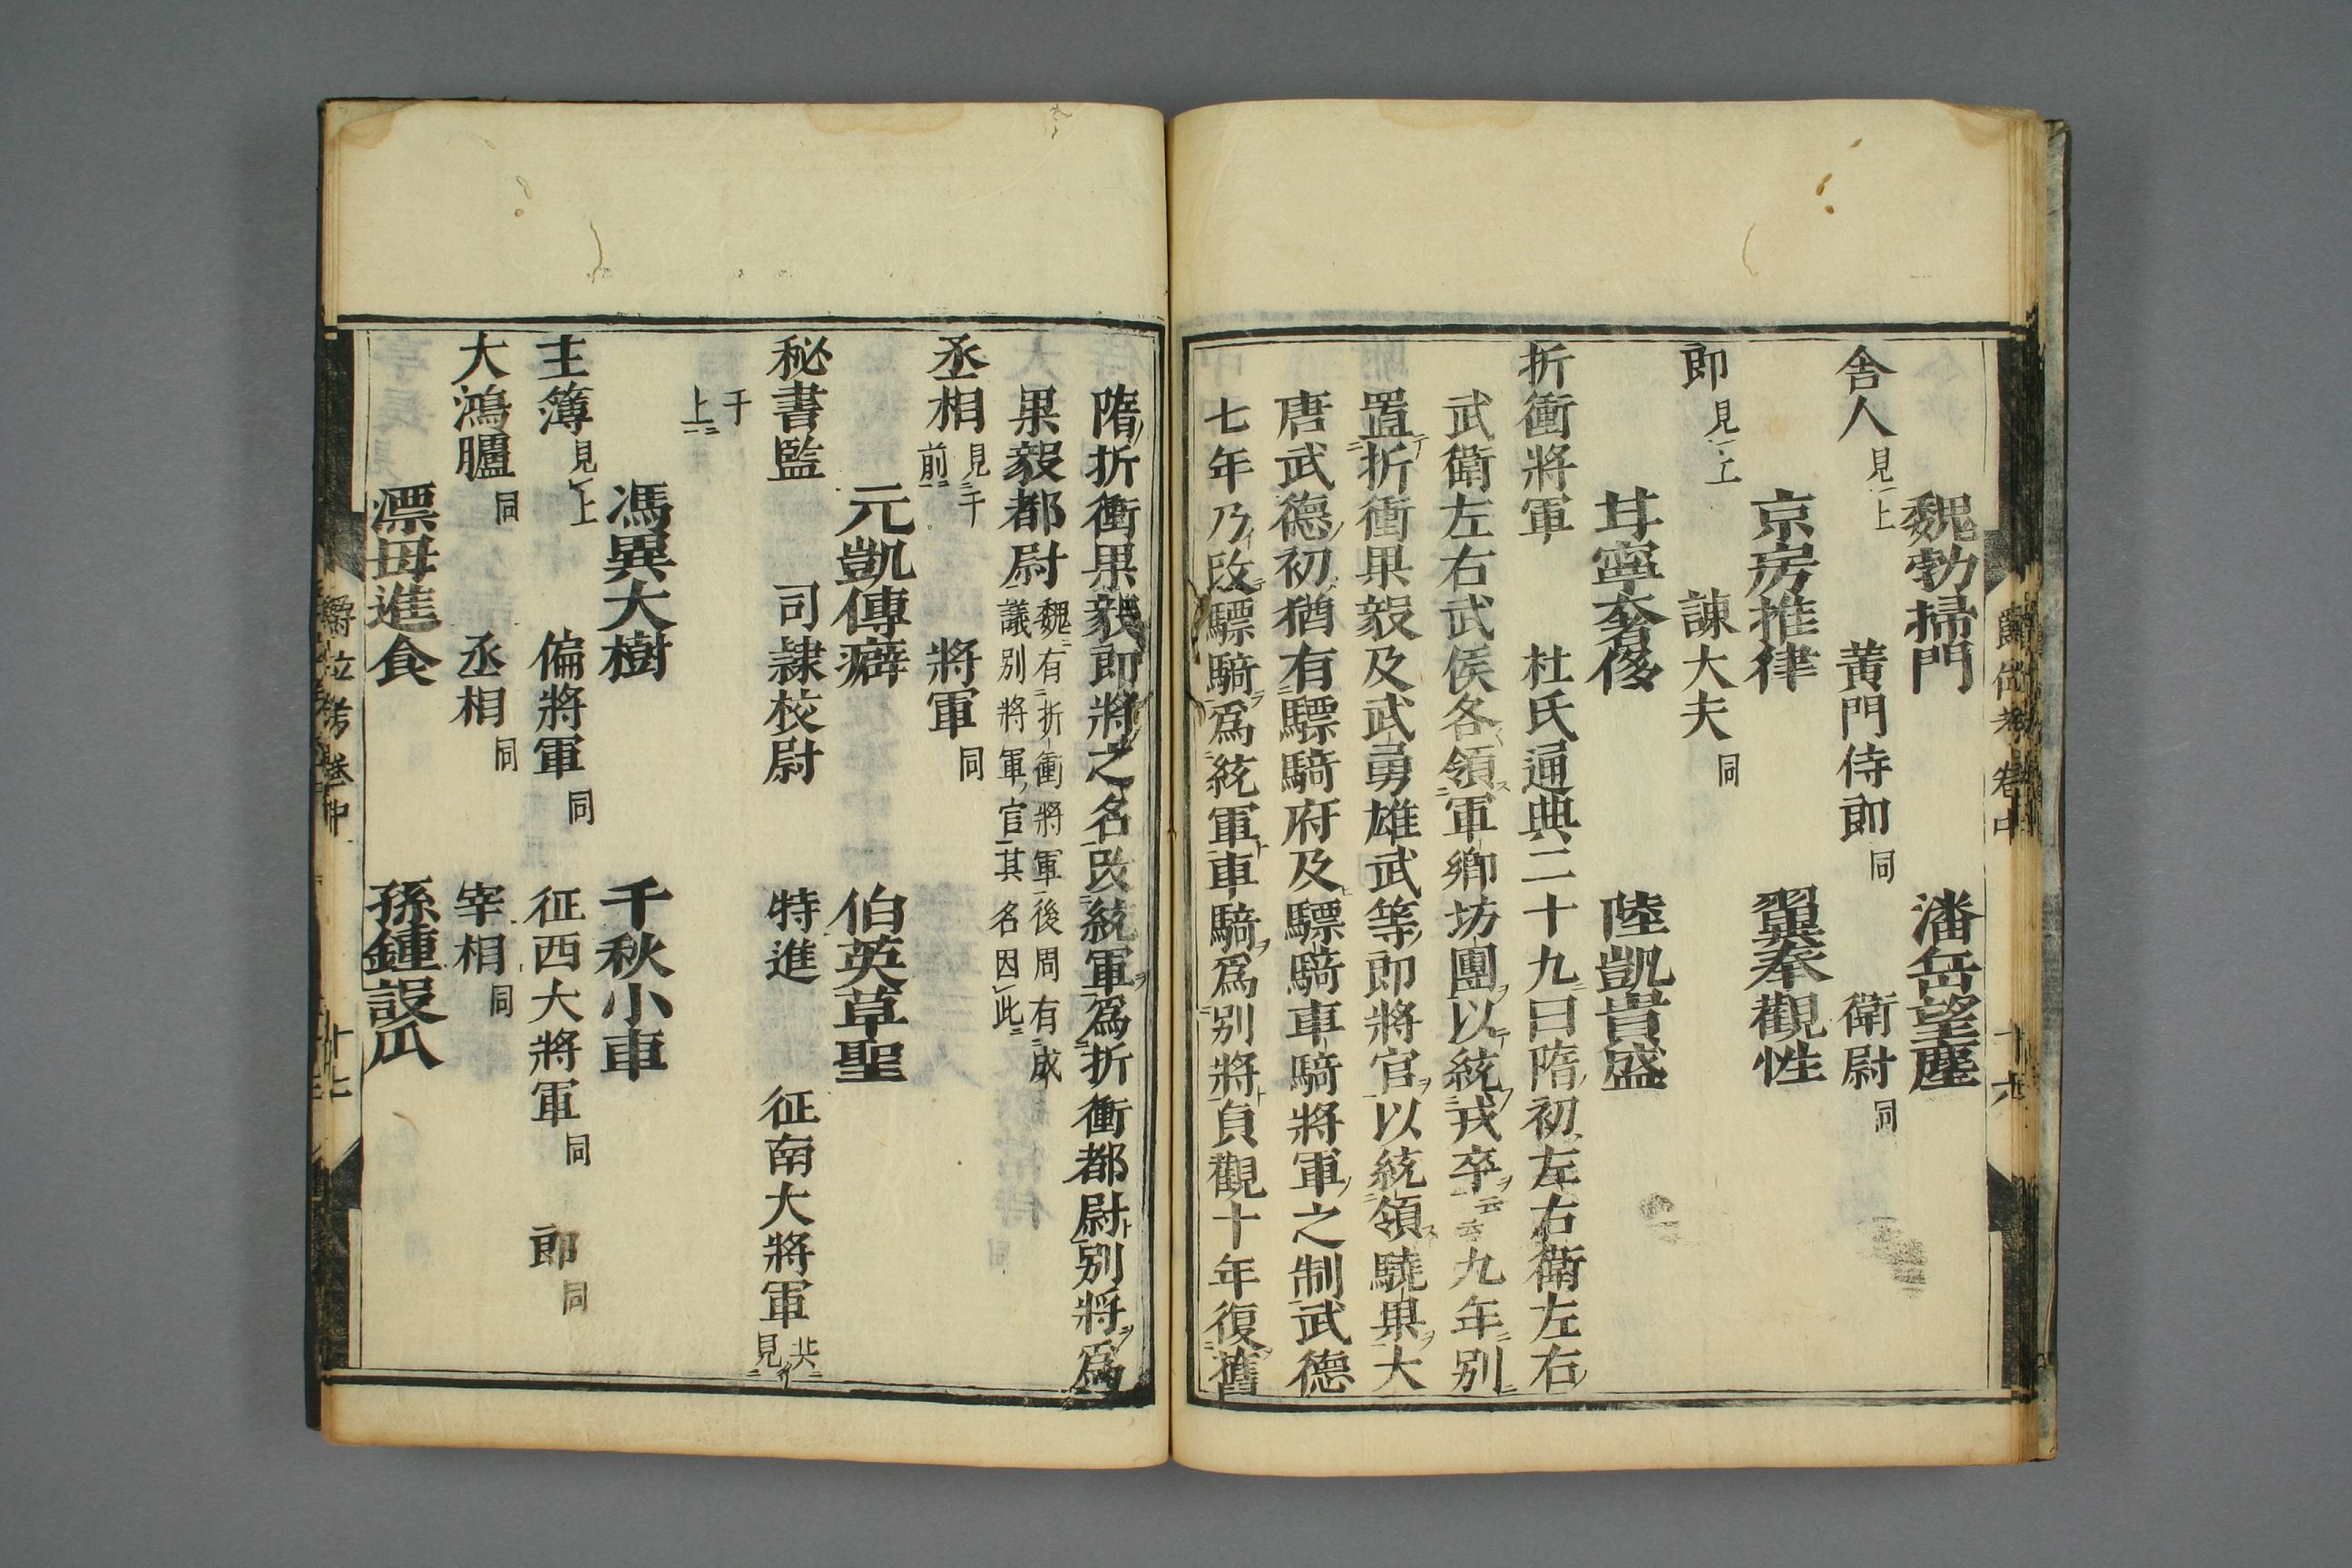 魏勃掃門　潘岳望塵
舎人見上　黄門侍郎同　衛尉同
京房推律　翼奉觀性
郎見上　諫大夫同
甘寧奢侈　陸凱貴盛
折衝將軍　杜氏通典二十九曰隋初左右衛左右
武衛左右武侯各領軍鄉坊團以統戎卒云云九年別
置折衝果毅及武勇雄武等郎將官以統領驍果大
唐武德初猶有驃騎府及驃騎車騎將軍之制武德
七年乃改驃騎爲統軍車騎爲別將貞觀十年復舊
爵位考卷中　十六
隋折衝果毅郎將之名改統軍爲折衝都尉別將爲
果毅都尉魏有折衝將軍後周有成議別將軍官其名因此
丞相見于前　將軍同
元凱傳癖　伯英草聖
秘書監　司隷校尉　特進　征南大將軍共見
于上
馮異大樹　千秋小車
主簿見上　偏將軍同　征西大將軍同　郎同
大鴻臚同　丞相同　宰相同
漂母進食　孫鍾設瓜
爵位考卷中　十七